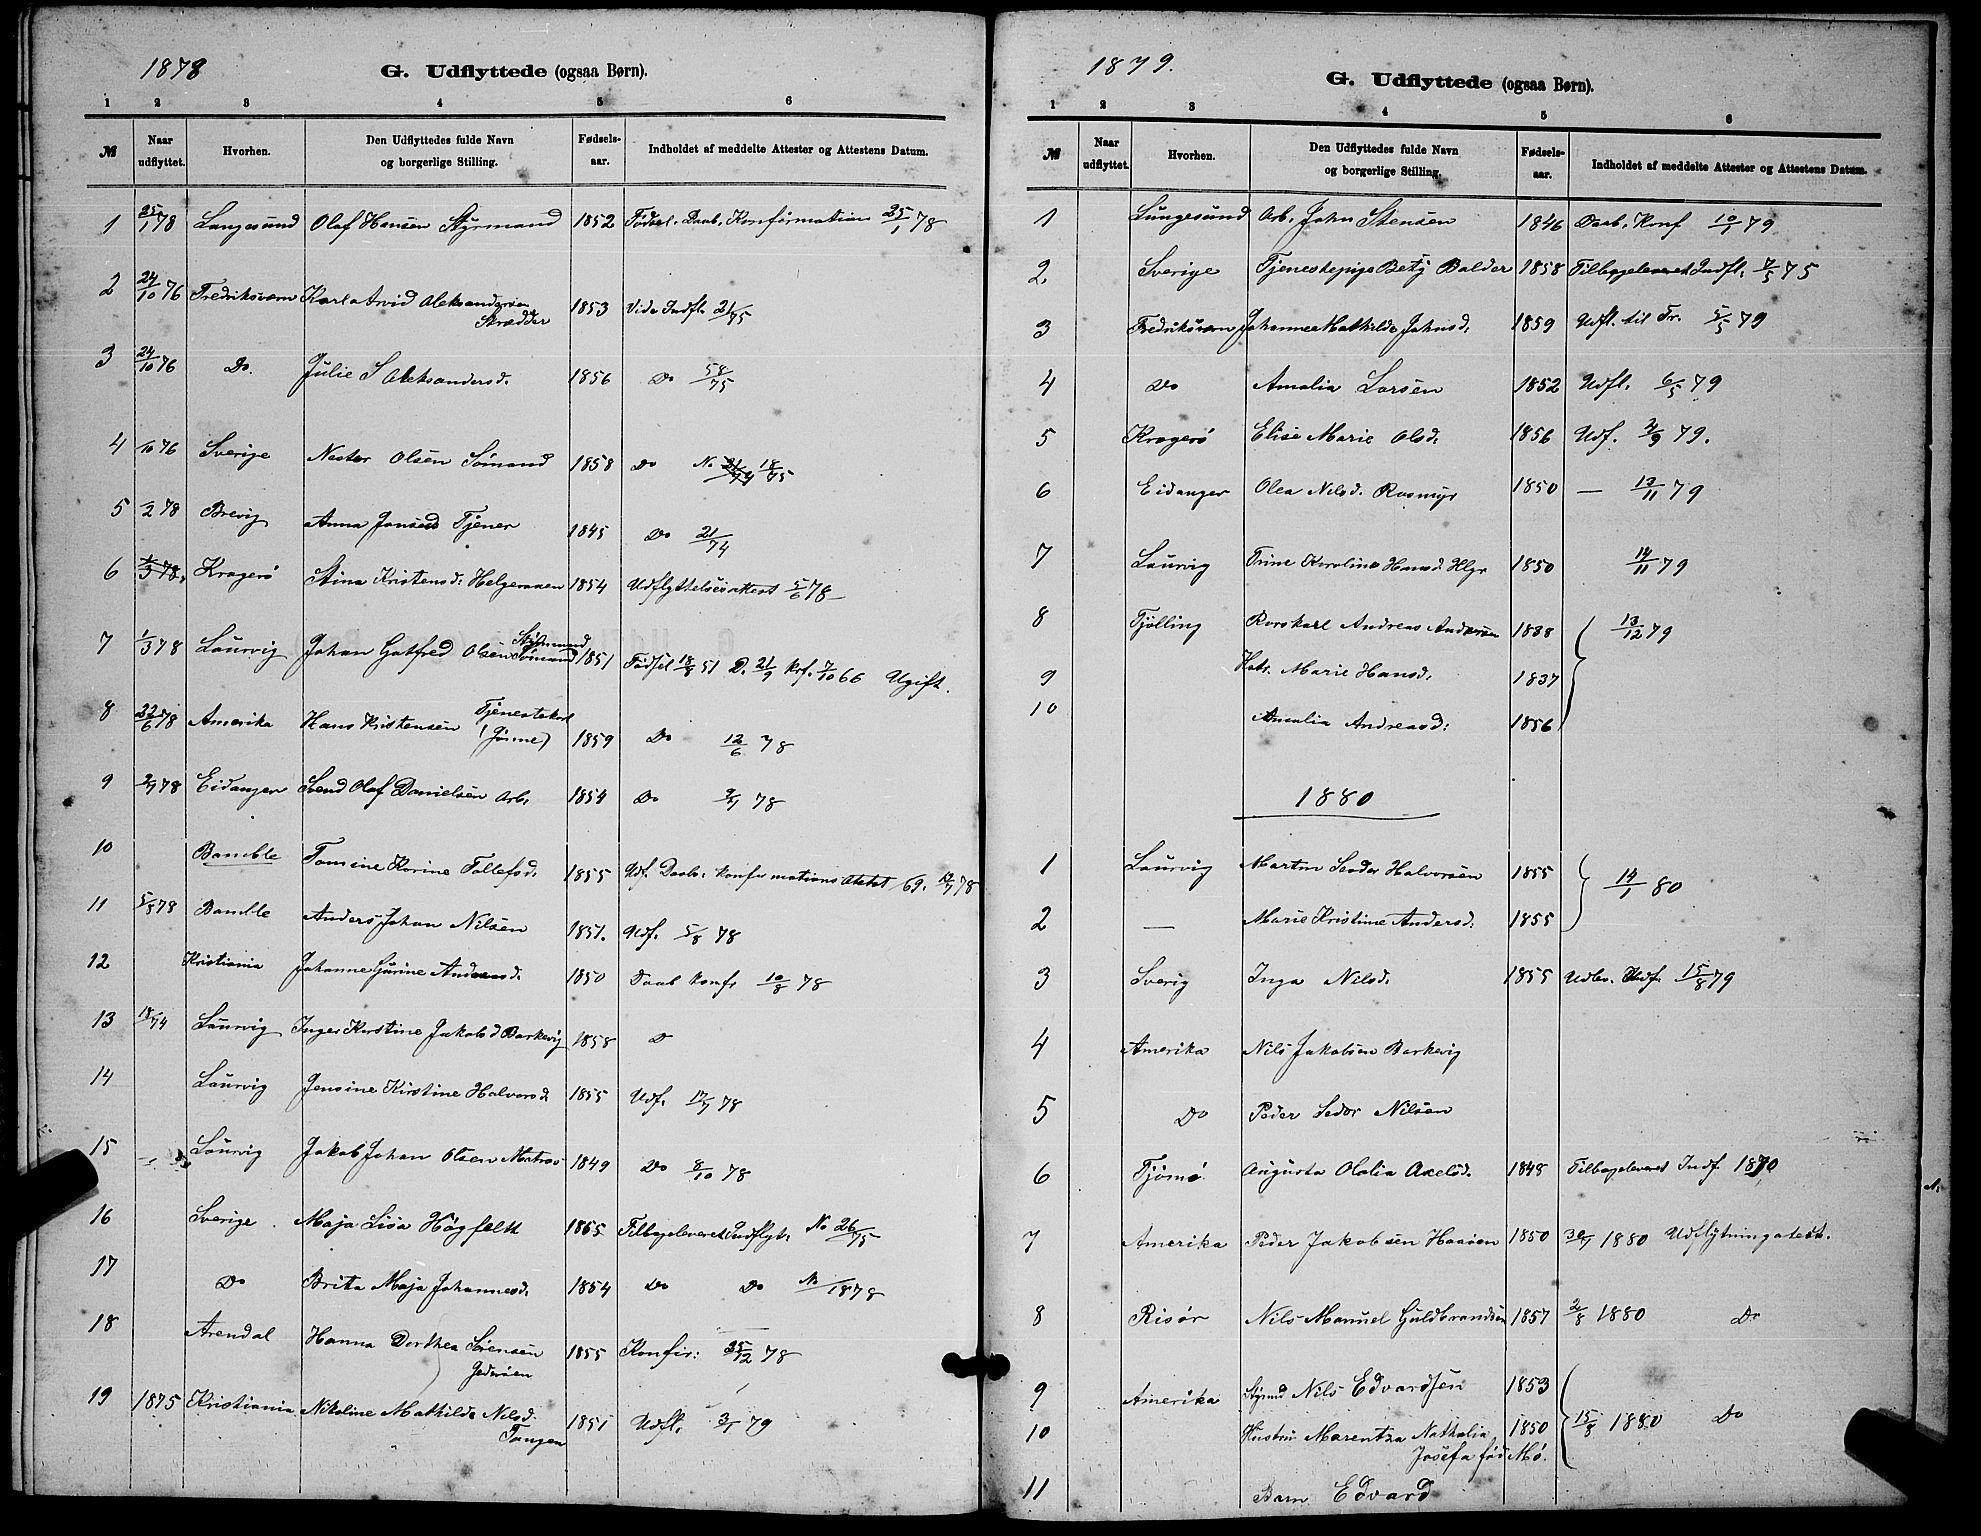 1878
G. Udflyttede (ogsaa Børn).
1 2 3 4 5 6
№ Naar udflyttet. Hvorhen. Den Udflyttedes fulde Navn og borgerlige Stilling. Fødsels-aar. Indholdet af meddelte Attester og Attestens Datum.
1 25/1 78 Langesund Olaf Hansen Styrmand 1852 Födsel. Daab. Konfirmation 25/1 78
2 24/10 76 Fredriksværn Karl Arvid Aleksandersen 1853 Vide Indfl. 21/75
Skrædder
3 24/10 76 Do. Julie S Aleksandersd. 1856 Do 58/75
4 10 76 Sverige Nestor Olsen Sömand 1858 Do No 18/75
5 2 78 Brevig Anna Jensed Tjener 1845 Do 21/74
6 1/3 78. Kragerö Stina Kristensd. Helgeraaen 1854 Udflyttelsesattest 5/6 78
7 1/3 78 Laurvig Johan Gotfred Olsen Styrmand 1851 Födsel 18/8 51 D. 21/9 Krf. 7/10 66 Ugift.
8 22/6 78 Amerika Hans Kristensen Tjenestekarl 1859 Do 12/6 78
9 2/7 78 Eidanger Svend Olaf Danielsen Arb. 1854 Do 2/7 78
10 Bamble Tomine Karine Tollefsd. 1855 Udf. Daabs. Konfirmations Attest 69. 12/7 78
11 5/8 78 Bamble Anders Johan Nilsen 1851. Udf. 5/8 78
12 Kristiania Johanne Gurine Andersd. 1850 Daab Konf. 10/8 78
13 18/74 Laurvig Inger Kirstine Jakobsd Barkevig 1858 D
14 Laurvig Jensine Kirstine Halvorsd. 1855 Udf. 17/7 78
15 Laurvig Jakob Johan Olsen Matros 1849 Do 8/10 78
16 Sverige Maja Lisa Högfelth 1865 Tilbageleveret Indflyt. No 26/75
17 Do Brita Maja Johannesd. 1854 Do Do No /1878
18 Arendal Hanna Dorthea Sörensen 1855 Konfir: 25/12 78
19 1875 Kristiania Nikoline Mathilde Nilsd. 1851 Udfl. 3/1 79
Tangen
1879.
G. Udflyttede (ogsaa Børn).
1 2 3 4 5 6
№ Naar udflyttet. Hvorhen. Den Udflyttedes fulde Navn og borgerlige Stilling. Fødsels-aar. Indholdet af meddelte Attester og Attestens Datum.
1 Langesund Arb. John Stensen 1846 Daab. Konf 10/1 79
2 Sverige Tjenestepige Betzy Balder 1858 Tilbageleveret Indfl. 7/5 75
3 Fredriksværn Johanne Mathilde Johnsd. 1859 Udfl. til Fr. 5/5 79
4 Do Amalia Larsen 1852 Udfl. 6/5 79
5 Kragerö Elise Marie Olsd. 1856 Udf. 2/9 79.
6 Eidanger Olea Nilsd. Rosmyr 1850 — 13/11 79
7 Laurvig Trine Karoline Hansd. Hlgr 1850 14/11 79
8 Tjölling Rorskarl Andreas Andersen 1838 13/12 79
9 Hstr. Marie Hansd. 1837
10 Amalia Andreasd: 1856
1880
1 Laurvig Martin Seder Halvorsen 1855 14/1 80
2 — Marie Kristine Andersd. 1855
3 Sverig Inga Nilsd. 1855 Udf. 15/8 79
4 Amerika Nils Jakobsen Barkevig
5 Do Peder Sedor Nilsen
6 Tjömö Augusta Olalia Axelsd. 1848 Tilbageleveret Indf. 1870
7 Amerika Peder Jakobsen Haaöen 1850 30/7 1880 Udflytningattest.
8 Risör Nils Manuel Guldbrandsen 1857 2/8 1880 Do
9 Amerika Styrmd Nils Edvardsen 1853
10 Hustru Marentza Nathalia 1850 15/8 1880 Do
Josefa föd Mö.
11 Barn Edvard